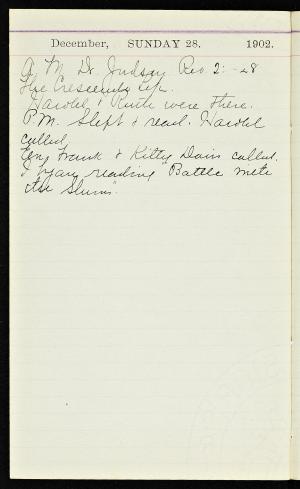 December, SUNDAY 28. 1902.
A M. Dr. Judson Rev 2:-28
The Crescents Life.
Harold & Ruth were there.
P.M. Slept & read. Harold
called.
Eng Frank & Kitty Davis called.
& reading "Battle with
the Slums".